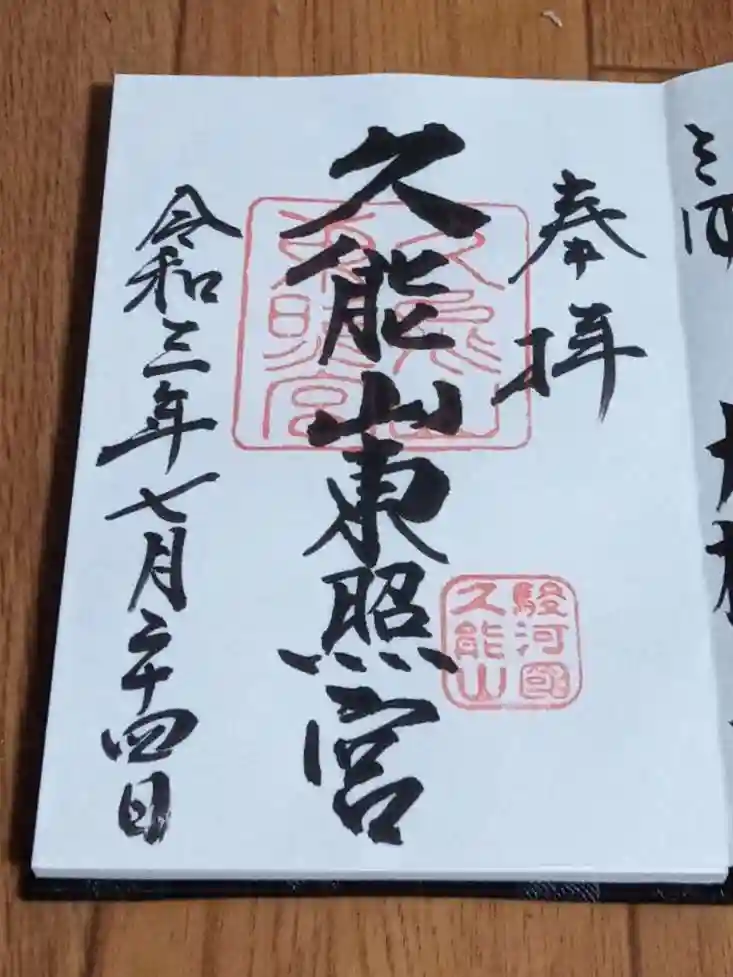 奉拝
久能山東照宮
令和三年七月二十四日
駿河國
久能山